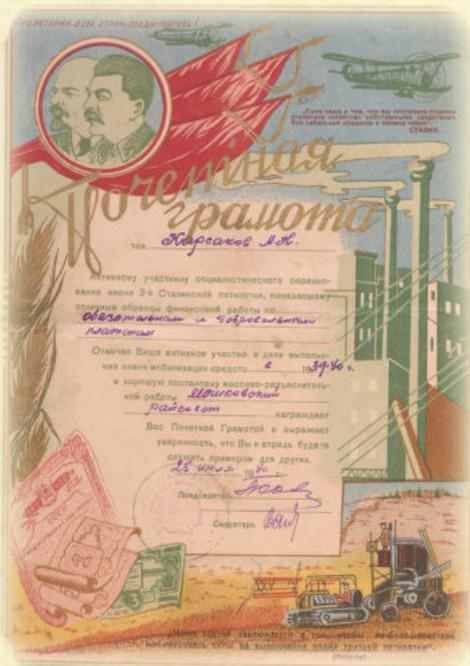 ПРОЛЕТАРИИ ВСЕХ СТРАН, СОЕДИНЯЙТЕСЬ!
СТАЛИН.
Почетная
грамота
тов. Корсаков А.Н.
Активному участнику социалистического соревно-
вания имени 3-й Сталинской пятилетки, показавшему
отличные образцы финансовой работы по
обязательным и добровольным
платежам
Отмечая Ваше активное участие в деле выполне-
ния плана мобилизации средств в 1939-40 г.
и хорошую постановку массово-разъяснитель-
ной работы Мошковский
райсовет награждает
Вас Почетной Грамотой и выражает
уверенность, что Вы и впредь будете
служить примером для других.
25 июля 1940 г.
Председатель
Секретарь
3
мобилизовать силы на выполнение плана третьей пятилетки".